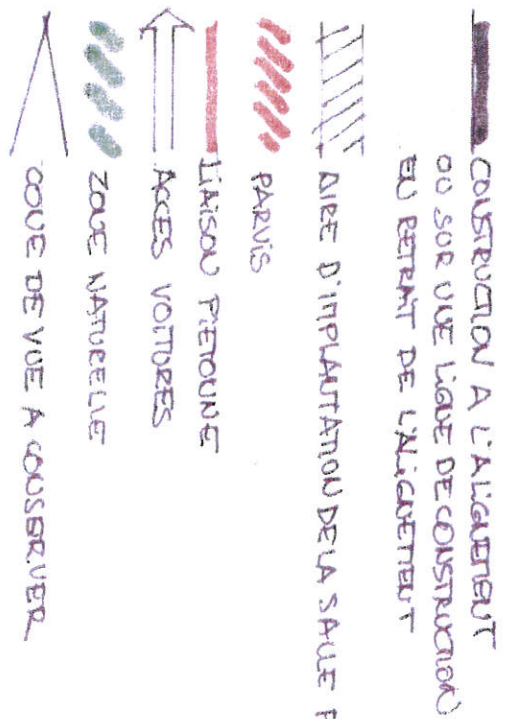 CONSTRUCTION A L'ALIGNEMENT
OU SUR UNE LIGNE DE CONSTRUCTION
EN RETRAIT DE L'ALIGNEMENT
AIRE D'IMPLANTATION DE LA SALLE P
PARVIS
LIAISON PIETONNE
ACCES VOITURES
ZONE NATURELLE
CONE DE VUE A CONSERVER